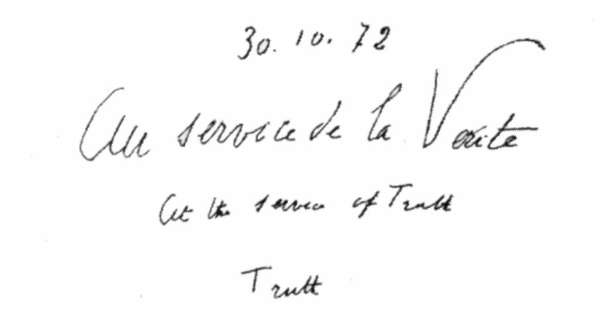 30.10.72
Au service de la Verite
At the service of Truth
Truth